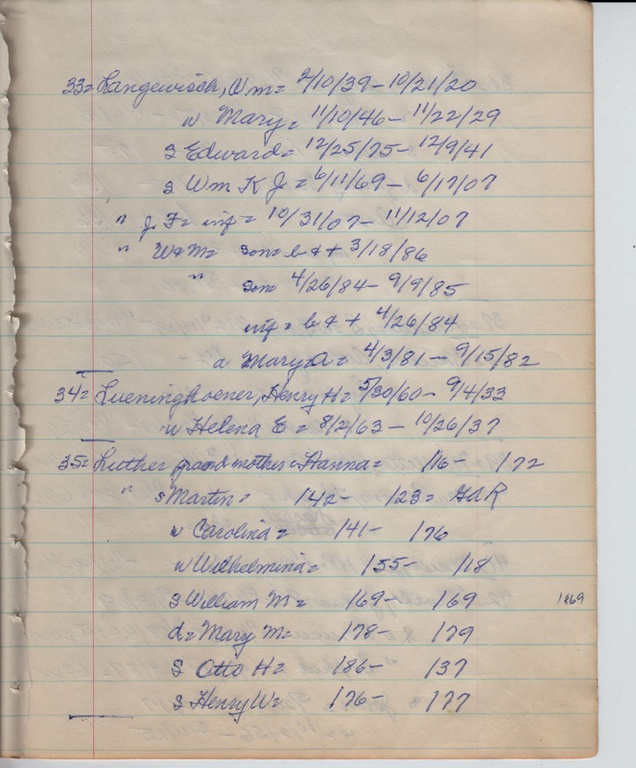 33= Langewisch, Wm= 2/10/39- 10/21/20
w Mary= 11/10/46- 11/22/29
s Edward= 12/25/75- 12/9/41
s Wm K J= 6/11/69- 6/17/07
" J. F= inf= 10/31/07- 11/12/07
" W+M= son= b + + 3/18/86
" son= 4/26/84- 9/9/85
inf= b + + 4/26/84
a Mary A= 4/3/81- 9/15/82
34= Lueninghoener, Henry H= 5/30/60- 9/4/33
w Helena E= 8/2/63- 10/26/37
35= Luther grandmother Hanna= /16- /72
" s Martin= /42- /23= GAR
w Carolina= /41- /76
w Wilhelmina= /55- /18
s William M= /69- /69 1869
d= Mary M= /78- /79
s Otto H= /86- /37
s Henry W= /76- /77